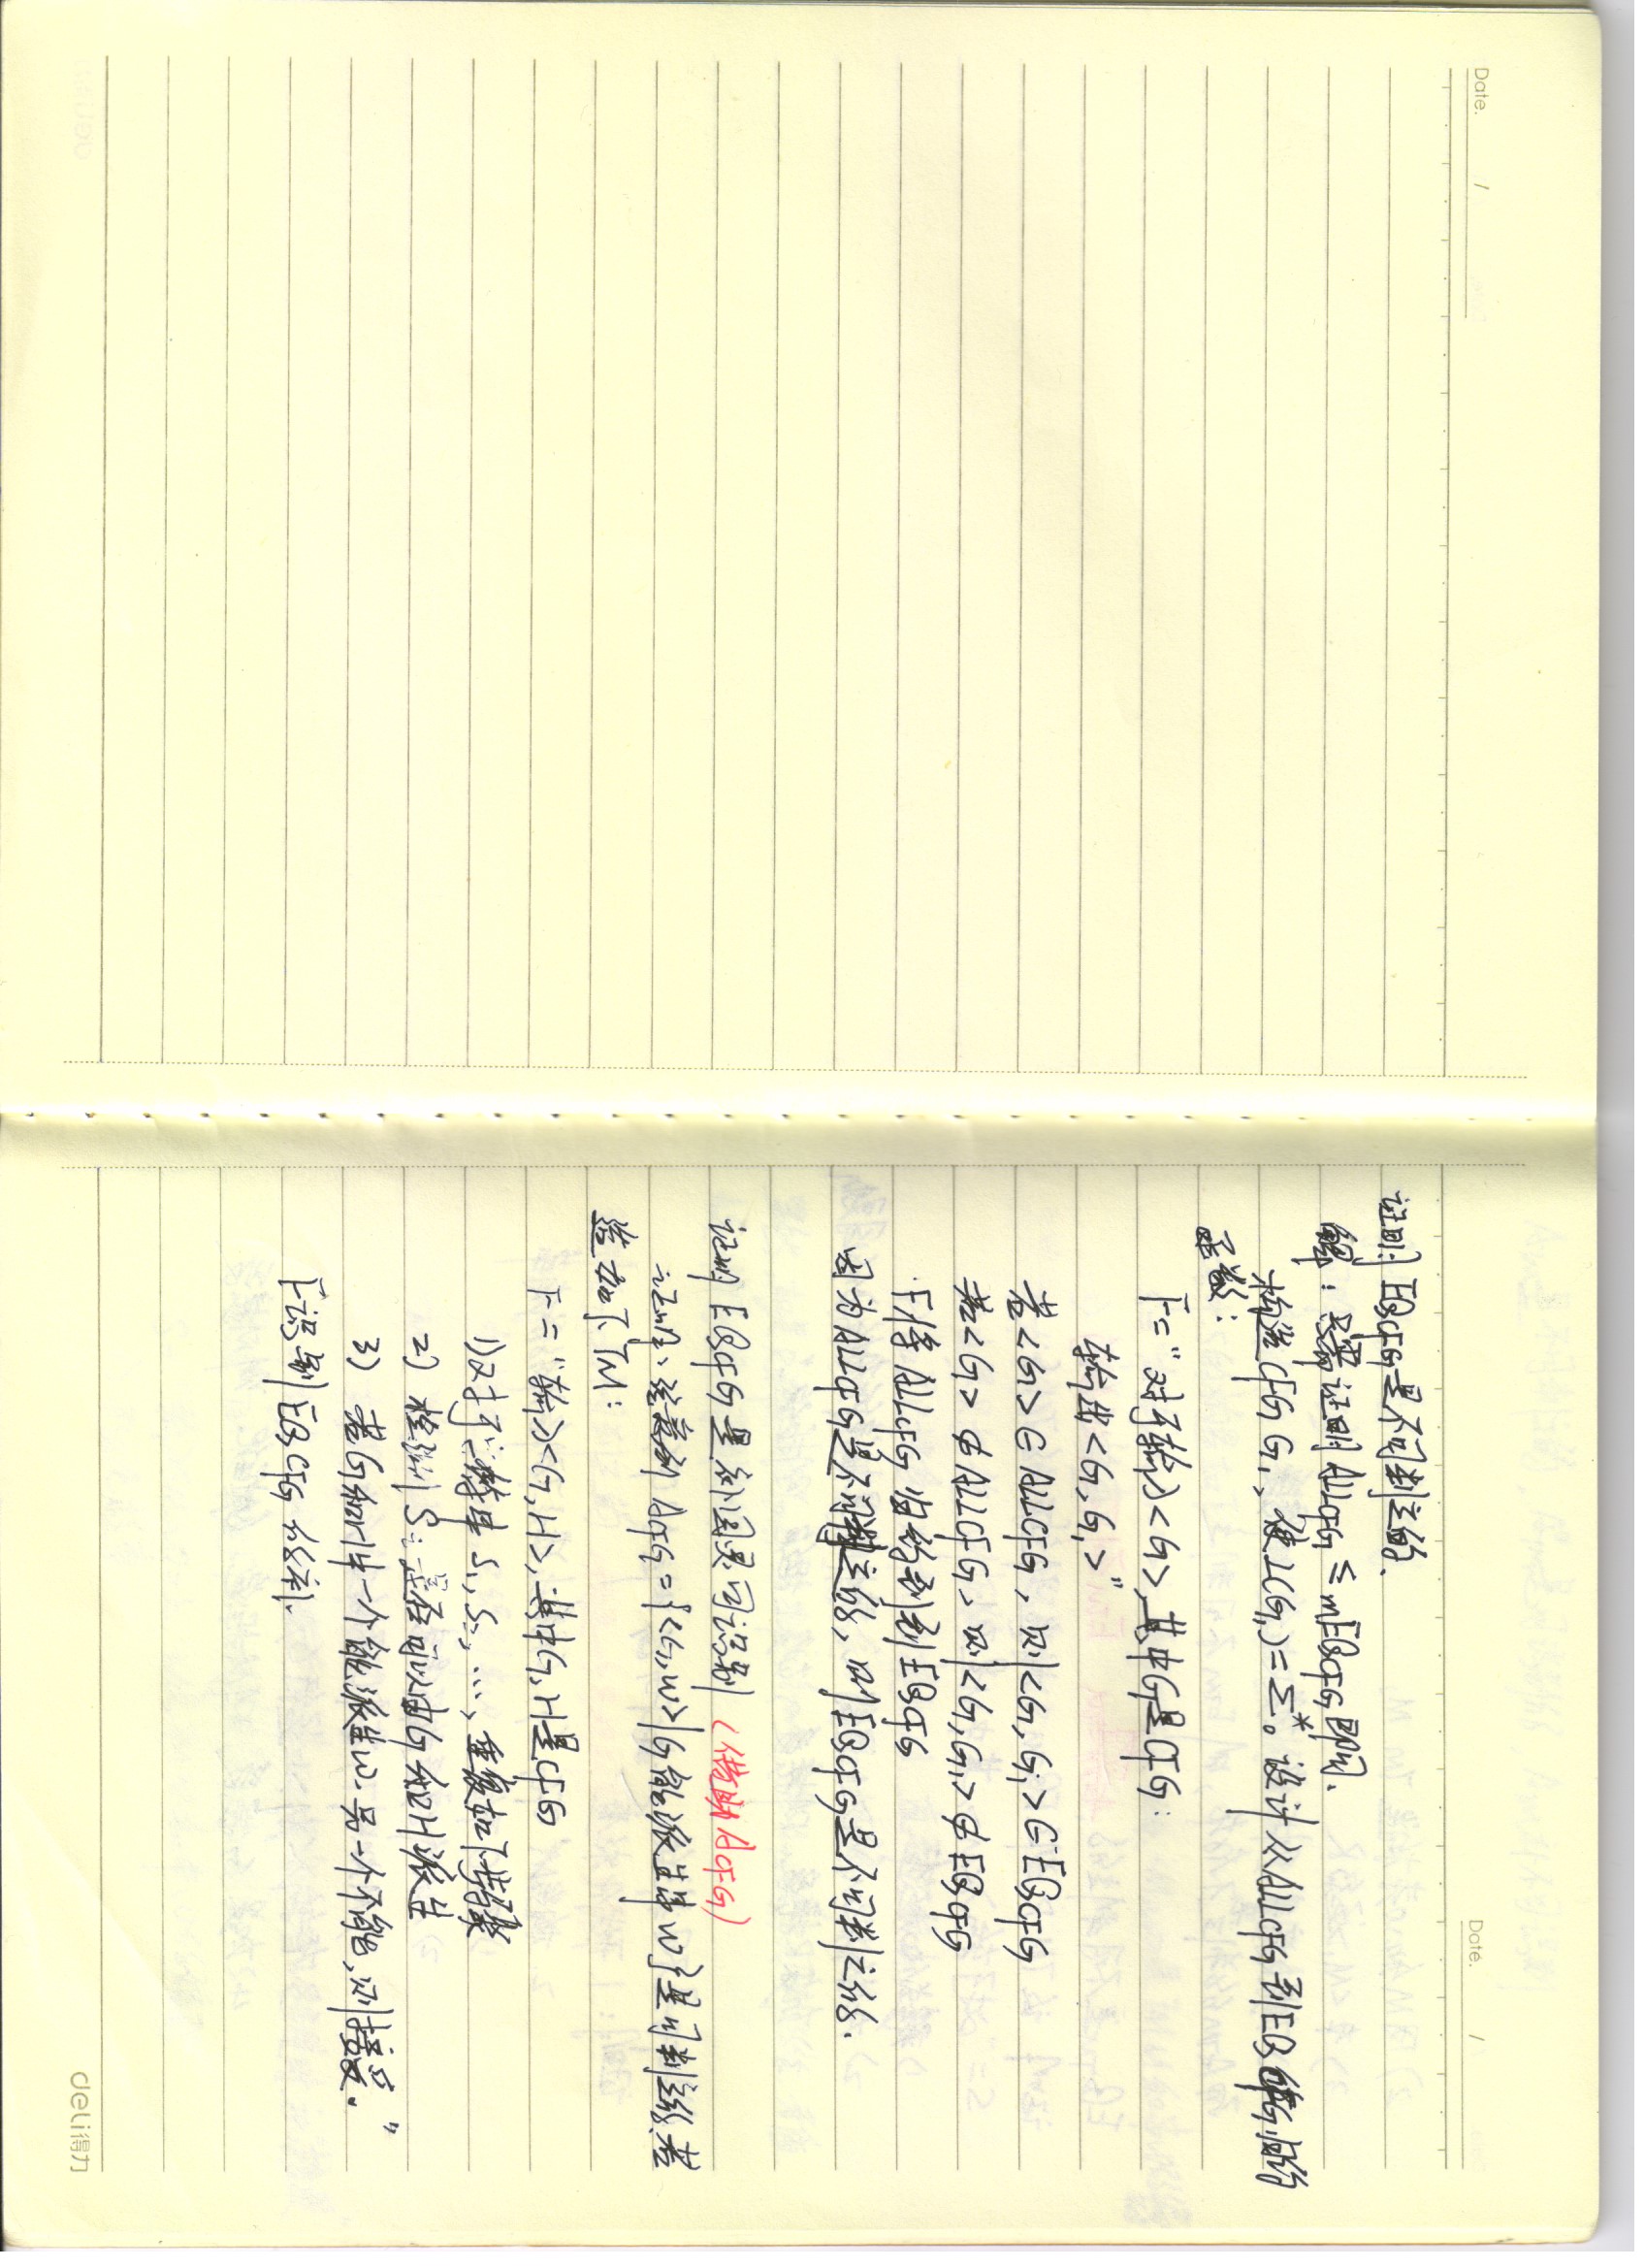 Date. /
Date. /
证明 EQCFG是不可判定的.
解：只需证明ALLCFG ≤mEQCFG即可.
构造CFG G₁, 使L(G₁)=Σ*。设计从ALLCFG到EQCFG归约
函数：
F="对于输入<G>,其中G是CFG:
输出<G,G₁>"
若<G>∈ALLCFG, 则<G,G₁>∈EQCFG
若<G>∉ALLCFG, 则<G,G₁>∉EQCFG
F将ALLCFG归约到到EQCFG
因为ALLCFG是不可判定的, 则EQCFG是不可判定的.
证明EQCFG是补图灵可识别 (借助ACFG)
证明: 注意到 ACFG={<G,W>|G能派生串W}是可判定的, 若
造如下TM:
F="输入<G,H>,其中G,H是CFG
1)对于 串S₁,S₂,…,重复如下步骤
2) 检测Sᵢ是否可以由G和H派生
3) 若G和H中一个能派生w,另一个不能,则接受."
F识别EQCFG的补.
deli得力